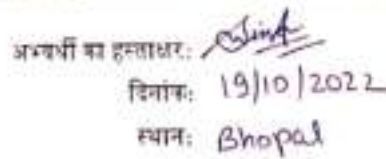 अभ्यर्थी का हस्ताक्षर:
दिनांक: 19/10/2022
स्थान: Bhopal